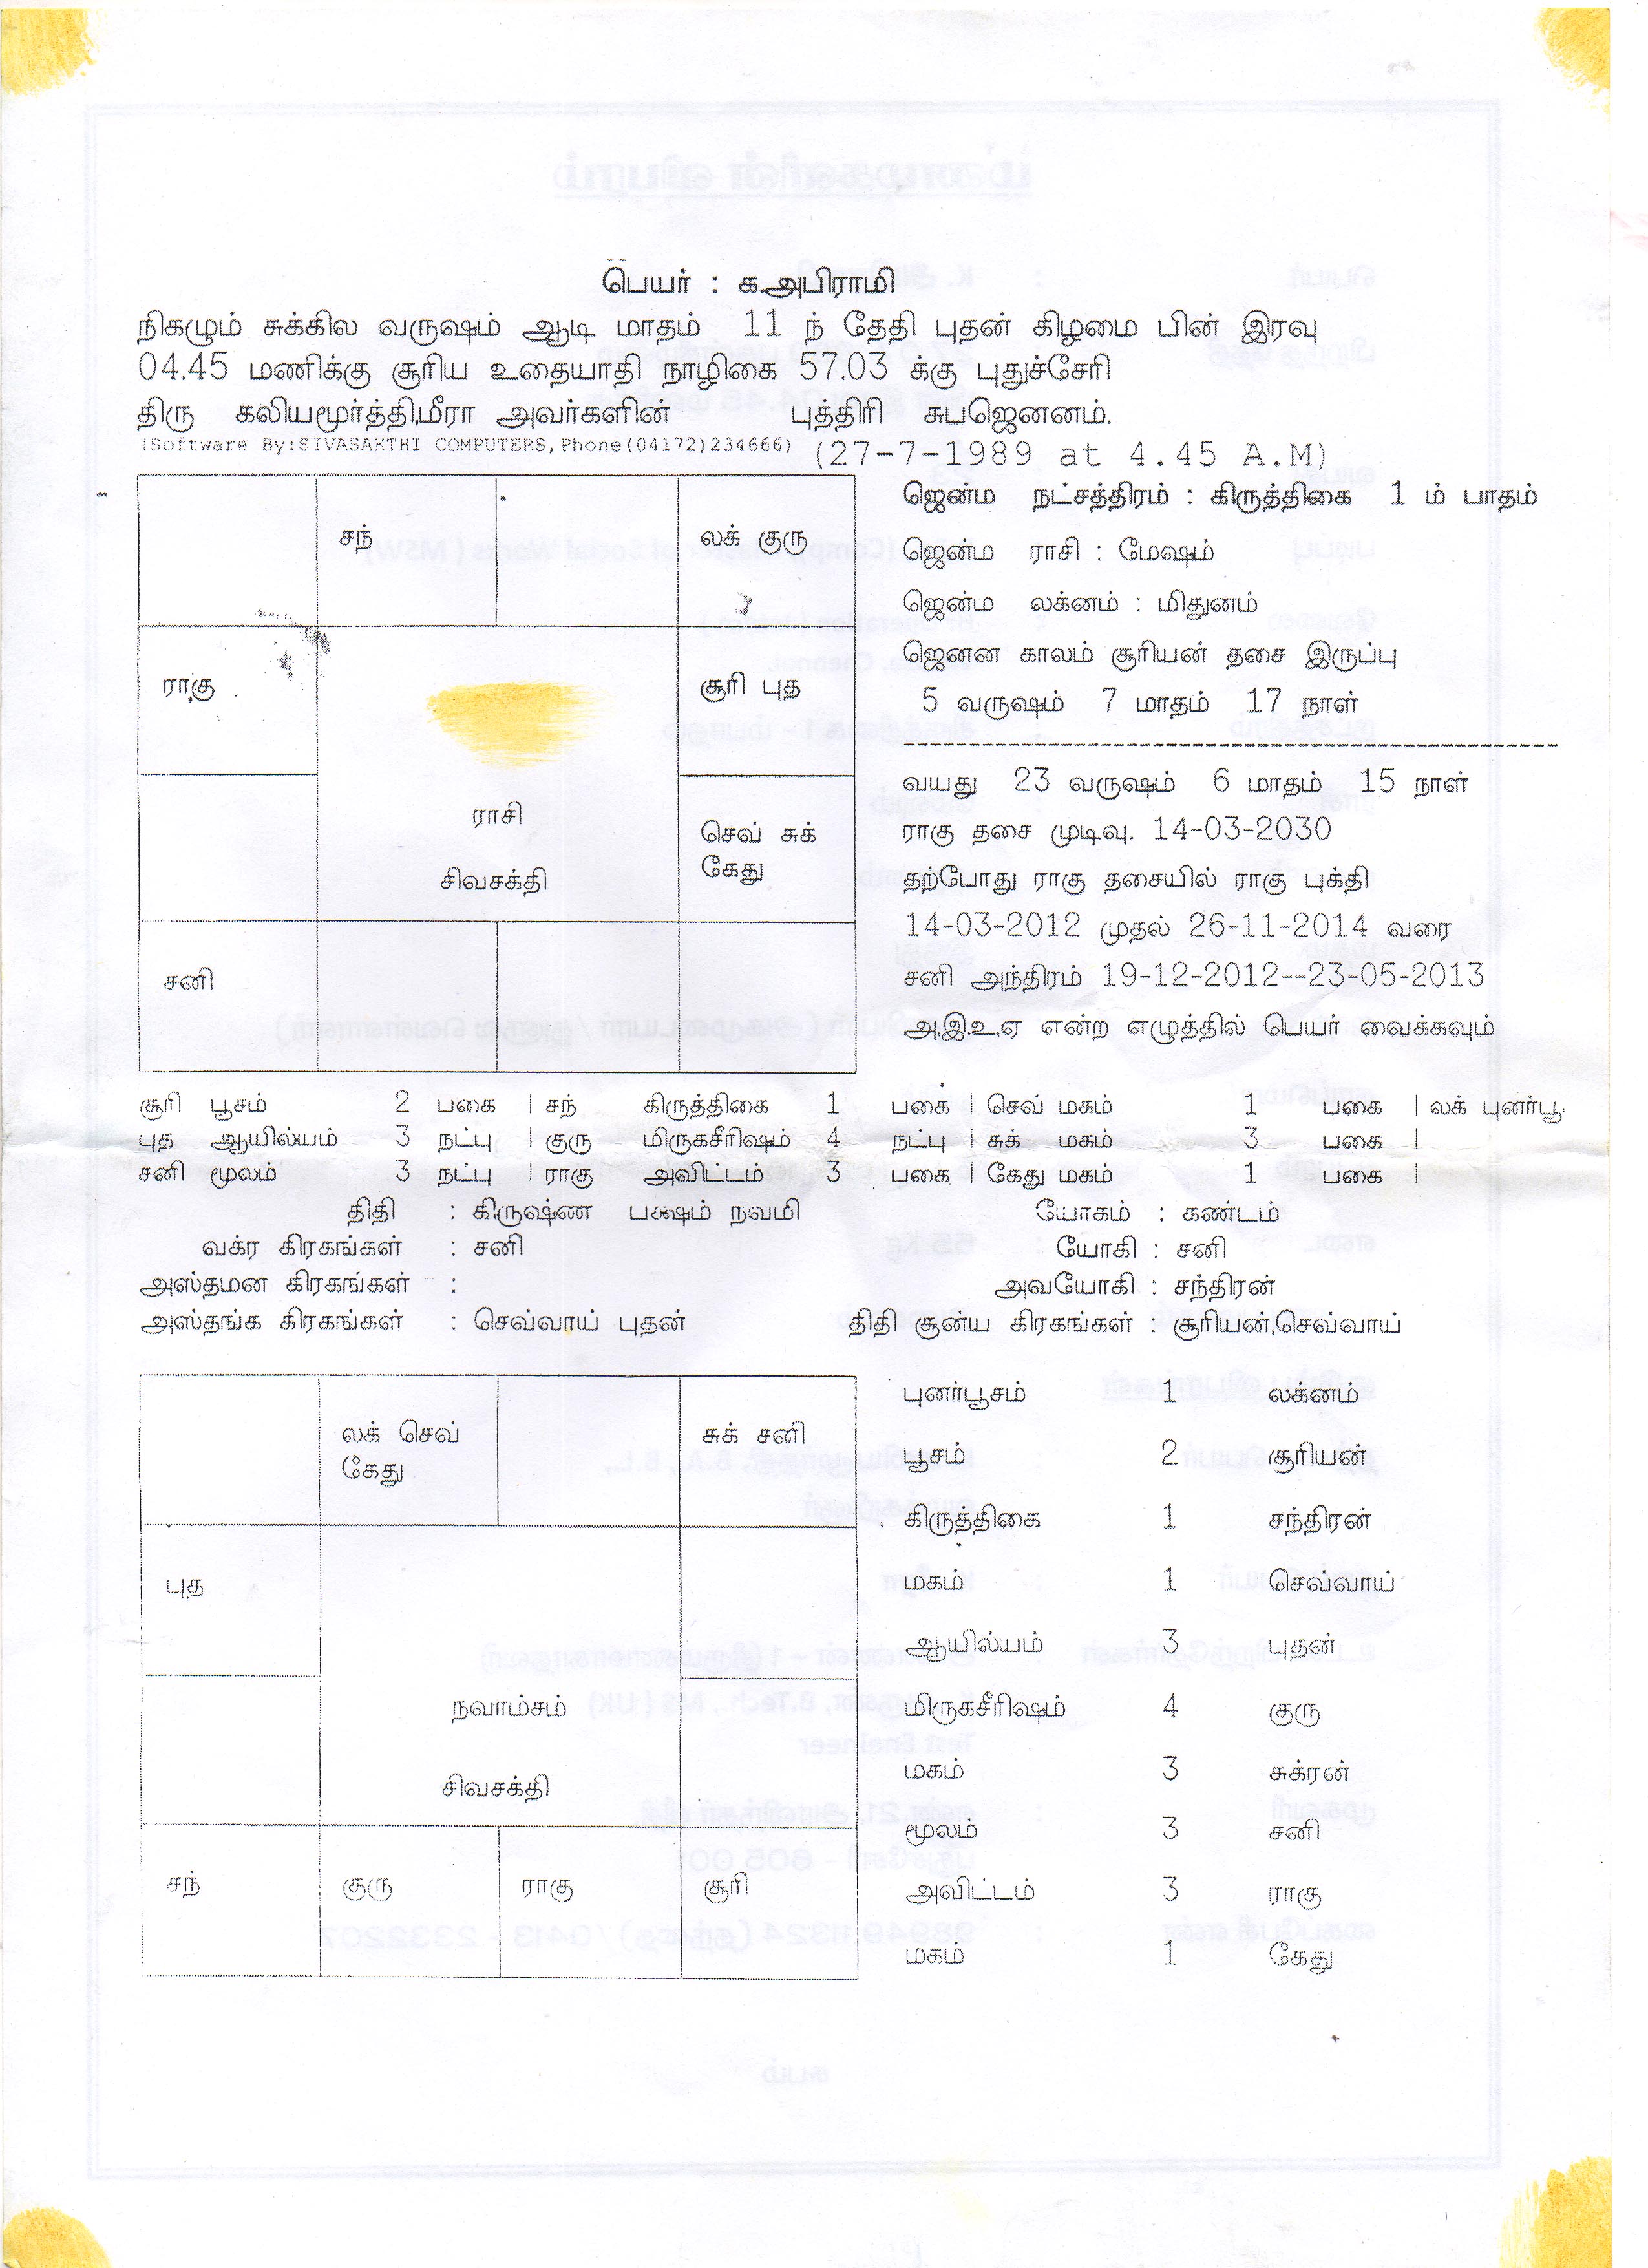 பெயர் : க.அபிராமி
நிகழும் சுக்கில வருஷம் ஆடி மாதம் 11 ந் தேதி புதன் கிழமை பின் இரவு
04.45 மணிக்கு சூரிய உதையாதி நாழிகை 57.03 க்கு புதுச்சேரி
திரு கலியமூர்த்தி,மீரா அவர்களின் புத்திரி சுபஜெனனம்.
(Software By:SIVASAKTHI COMPUTERS,Phone(04172)234666) (27-7-1989 at 4.45 A.M)
சந்
லக் குரு
ராகு
சூரி புத
ராசி
சிவசக்தி
செவ் சுக்
கேது
சனி
ஜென்ம நட்சத்திரம் : கிருத்திகை 1 ம் பாதம்
ஜென்ம ராசி : மேஷம்
ஜென்ம லக்னம் : மிதுனம்
ஜெனன காலம் சூரியன் தசை இருப்பு
5 வருஷம் 7 மாதம் 17 நாள்
வயது 23 வருஷம் 6 மாதம் 15 நாள்
ராகு தசை முடிவு. 14-03-2030
தற்போது ராகு தசையில் ராகு புக்தி
14-03-2012 முதல் 26-11-2014 வரை
சனி அந்திரம் 19-12-2012--23-05-2013
அ,இ,உ,ஏ என்ற எழுத்தில் பெயர் வைக்கவும்
சூரி பூசம் 2 பகை | சந் கிருத்திகை 1 பகை | செவ் மகம் 1 பகை | லக் புனர்பூ
புத ஆயில்யம் 3 நட்பு | குரு மிருகசீரிஷம் 4 நட்பு | சுக் மகம் 3 பகை |
சனி மூலம் 3 நட்பு | ராகு அவிட்டம் 3 பகை | கேது மகம் 1 பகை |
திதி : கிருஷ்ண பக்ஷம் நவமி யோகம் : கண்டம்
வக்ர கிரகங்கள் : சனி யோகி : சனி
அஸ்தமன கிரகங்கள் : அவயோகி : சந்திரன்
அஸ்தங்க கிரகங்கள் : செவ்வாய் புதன் திதி சூன்ய கிரகங்கள் : சூரியன்,செவ்வாய்
லக் செவ்
கேது
சுக் சனி
புத
நவாம்சம்
சிவசக்தி
சந்
குரு
ராகு
சூரி
புனர்பூசம் 1 லக்னம்
பூசம் 2 சூரியன்
கிருத்திகை 1 சந்திரன்
மகம் 1 செவ்வாய்
ஆயில்யம் 3 புதன்
மிருகசீரிஷம் 4 குரு
மகம் 3 சுக்ரன்
மூலம் 3 சனி
அவிட்டம் 3 ராகு
மகம் 1 கேது